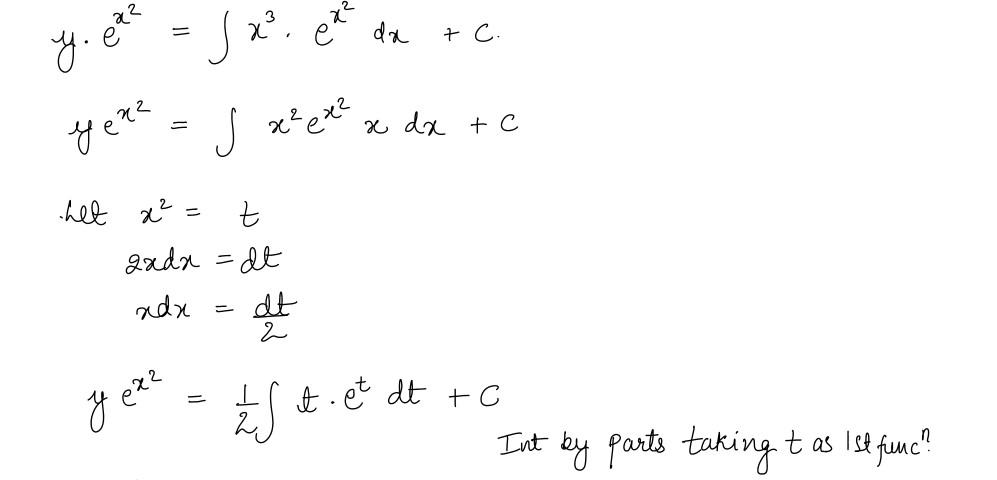 y · e^{x^2} = ∫ x^3 . e^{x^2} dx + C.
y e^{x^2} = ∫ x^2 e^{x^2} x dx + C
Let x^2 = t
2xdx = dt
xdx = dt/2
y e^{x^2} = 1/2 ∫ t . e^t dt + C
Int by parts taking t as 1st func^n.